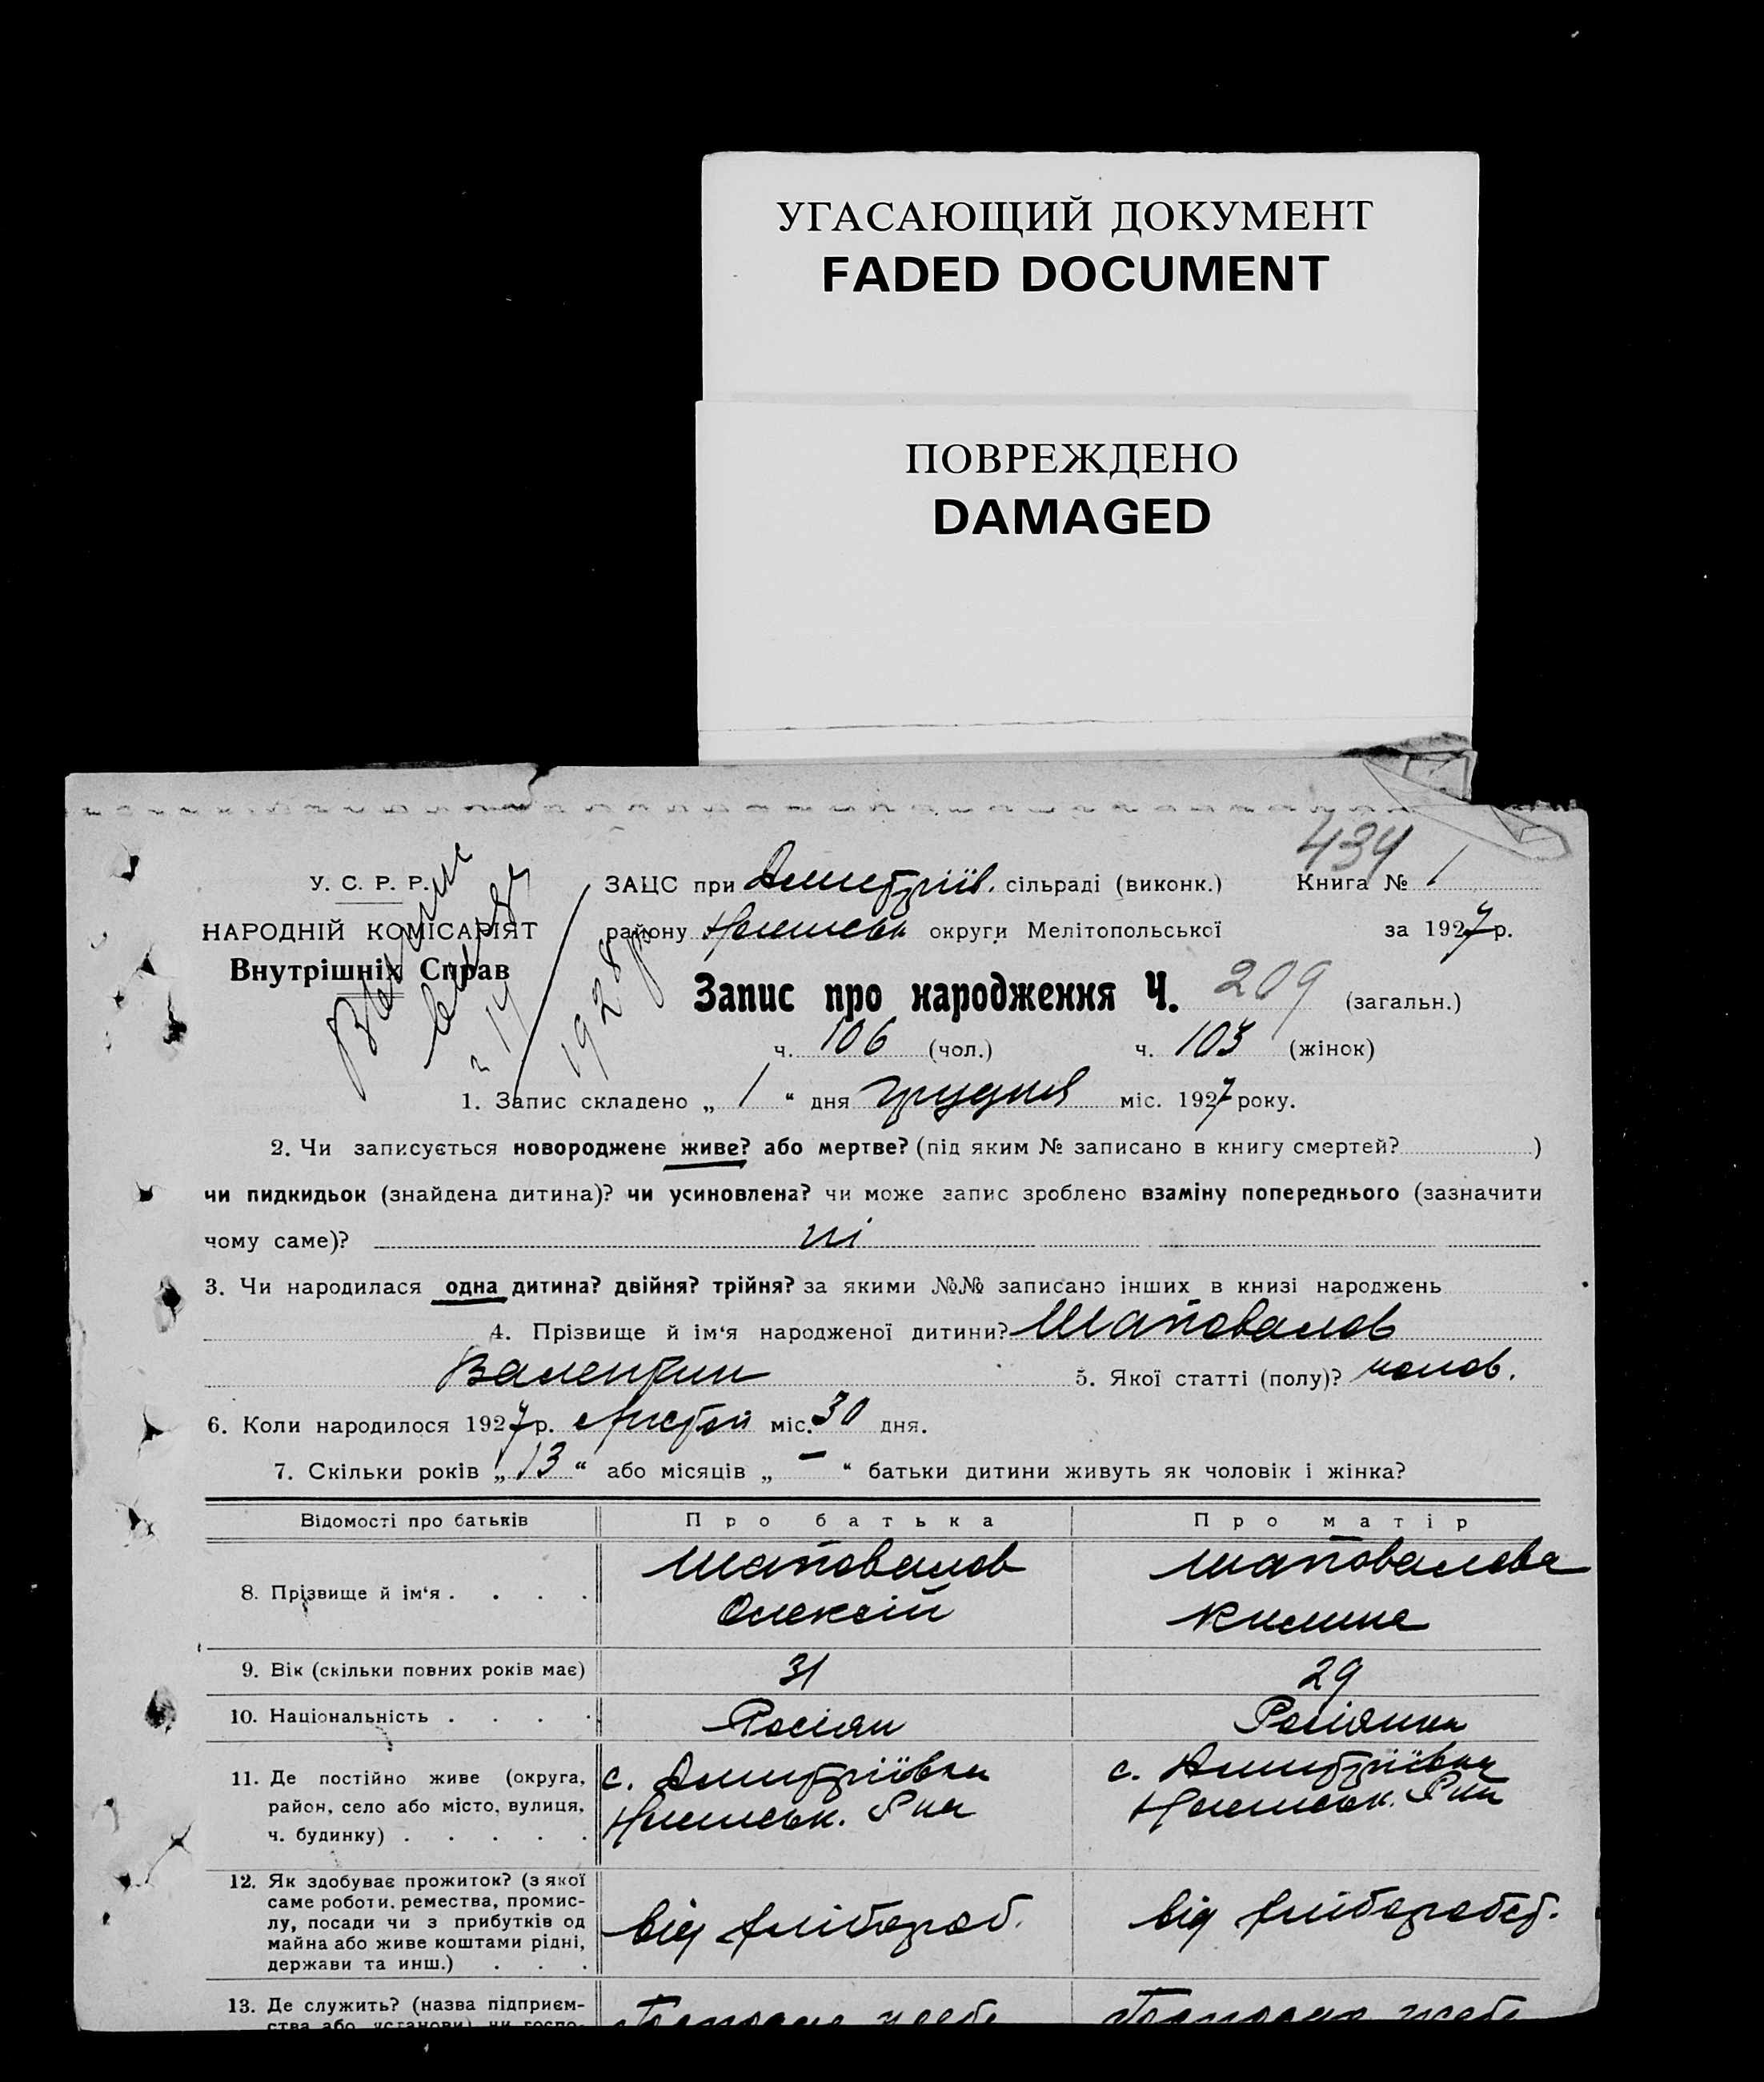 УГАСАЮЩИЙ ДОКУМЕНТ
FADED DOCUMENT
ПОВРЕЖДЕНО
DAMAGED
434
У. С. Р. Р.
НАРОДНІЙ КОМІСАРІЯТ
Внутрішніх Справ
1928 р
ЗАЦС при Дмитріїв. сільраді (виконк.)
Книга № 1
району округи Мелітопольської
за 1927 р.
Запис про народження Ч. 209 (загальн.)
ч. 106 (чол.) ч. 103 (жінок)
1. Запис складено „ 1 “ дня грудня міс. 1927 року.
2. Чи записується новороджене живе? або мертве? (під яким № записано в книгу смертей? )
чи пидкидьок (знайдена дитина)? чи усиновлена? чи може запис зроблено взаміну попереднього (зазначити
чому саме)? ні
3. Чи народилася одна дитина? двійня? трійня? за якими №№ записано інших в книзі народжень
4. Прізвище й ім‘я народженої дитини? Шаповалов
Валентин 5. Якої статті (полу)? чолов.
6. Коли народилося 1927 р. Листоп міс. 30 дня.
7. Скільки років „ 13 “ або місяців „ — “ батьки дитини живуть як чоловік і жінка?
Відомості про батьків Про батька Про матір
8. Прізвище й ім‘я . . . .
Шаповалов
Олексій
Шаповалова
Килина
9. Вік (скільки повних років має) 31 29
10. Національність . . . . Росіян Росіянка
11. Де постійно живе (округа,
район, село або місто, вулиця,
ч. будинку) . . . . .
с. Дмитріївка
с. Дмитріївка
12. Як здобуває прожиток? (з якої
саме роботи, ремества, промис-
лу, посади чи з прибутків од
майна або живе коштами рідні,
держави та инш.) . . .
від хлібороб.
від хліборобст.
13. Де служить? (назва підприєм-
ства або установи) чи госпо-